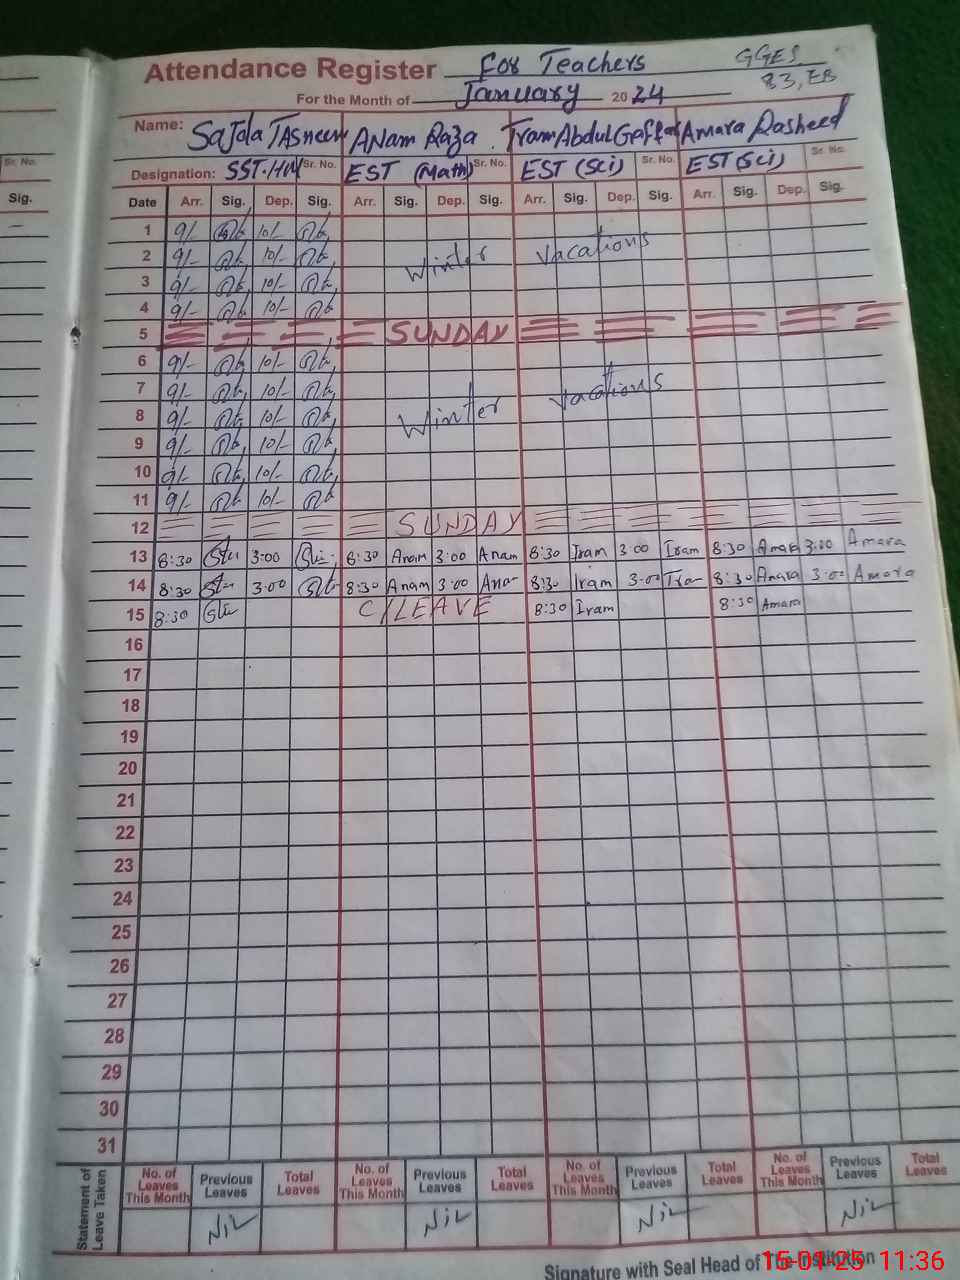 Attendance Register For Teachers GGES
83, EB
For the Month of January 2024
Name: SaJda TAsneem ANam Raza Iram Abdul Gaffar Amara Rasheed
Designation: SST.HM Sr. No. EST (Math) Sr. No. EST (Sci) Sr. No. EST (Sci) Sr. No.
Sr. No.
Sig.
Date Arr. Sig. Dep. Sig. Arr. Sig. Dep. Sig. Arr. Sig. Dep. Sig. Arr. Sig. Dep. Sig.
1 9/- 10/-
2 9/- 10/- Winter Vacations
3 9/- 10/-
4 9/- 10/-
5 SUNDAY
6 9/- 10/-
7 9/- 10/-
8 9/- 10/- Winter Vacations
9 9/- 10/-
10 9/- 10/-
11 9/- 10/-
12 SUNDAY
13 8:30 3:00 8:30 Anam 3:00 Anam 8:30 Iram 3:00 Iram 8:30 Amara 3:00 Amara
14 8:30 3:00 8:30 Anam 3:00 Ana 8:30 Iram 3:00 Ira 8:30 Amara 3:00 Amara
15 8:30 C/LEAVE 8:30 Iram 8:30 Amara
16
17
18
19
20
21
22
23
24
25
26
27
28
29
30
31
Statement of Leave Taken No. of Leaves This Month Previous Leaves Total Leaves No. of Leaves This Month Previous Leaves Total Leaves No. of Leaves This Month Previous Leaves Total Leaves No. of Leaves This Month Previous Leaves Total Leaves
NiL NiL NiL NiL
Signature with Seal Head of The Institution
15-01-25 11:36